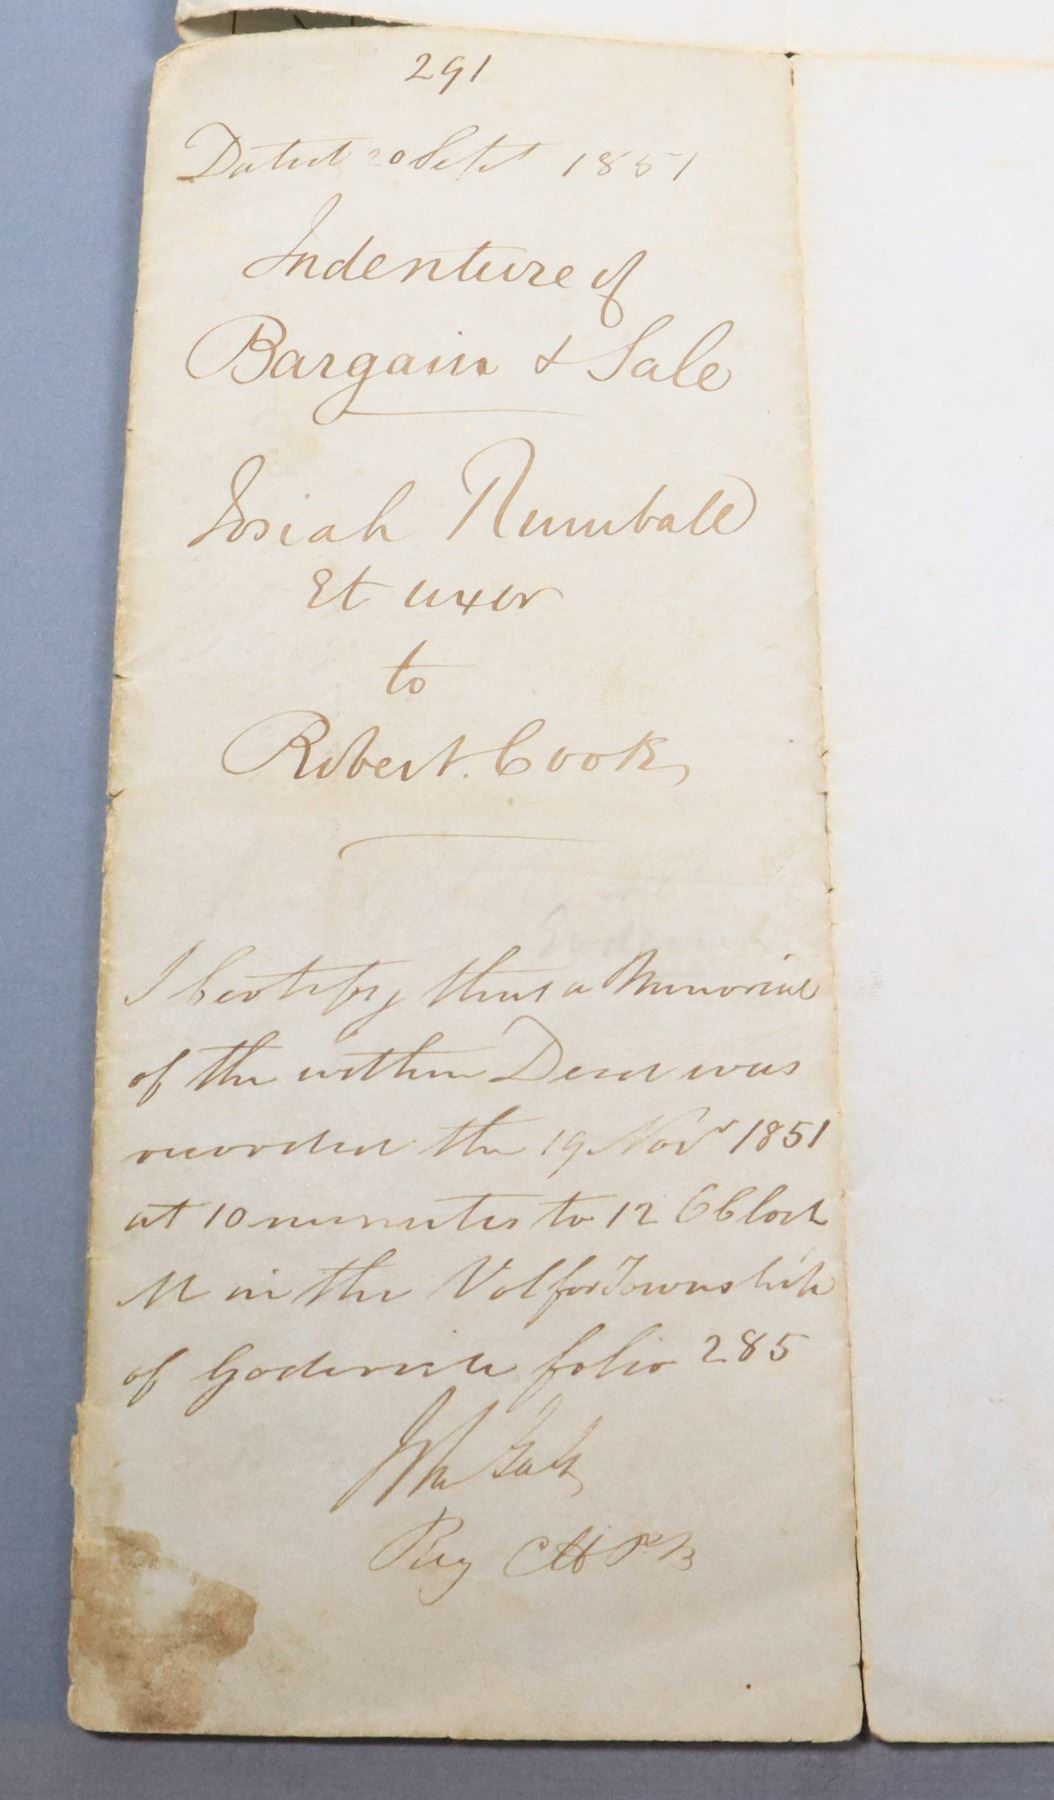 291
Dated 20 Sept 1851
Indenture of
Bargain & Sale
Josiah Rumball
Et uxor
to
Robert Cook
I Certify that a Memorial
of the within Deed was
recorded the 19 Novr 1851
at 10 minutes to 12 OClock
M in the Vol for Township
of Goderich folio 285
Jno Galt
Reg C H P B